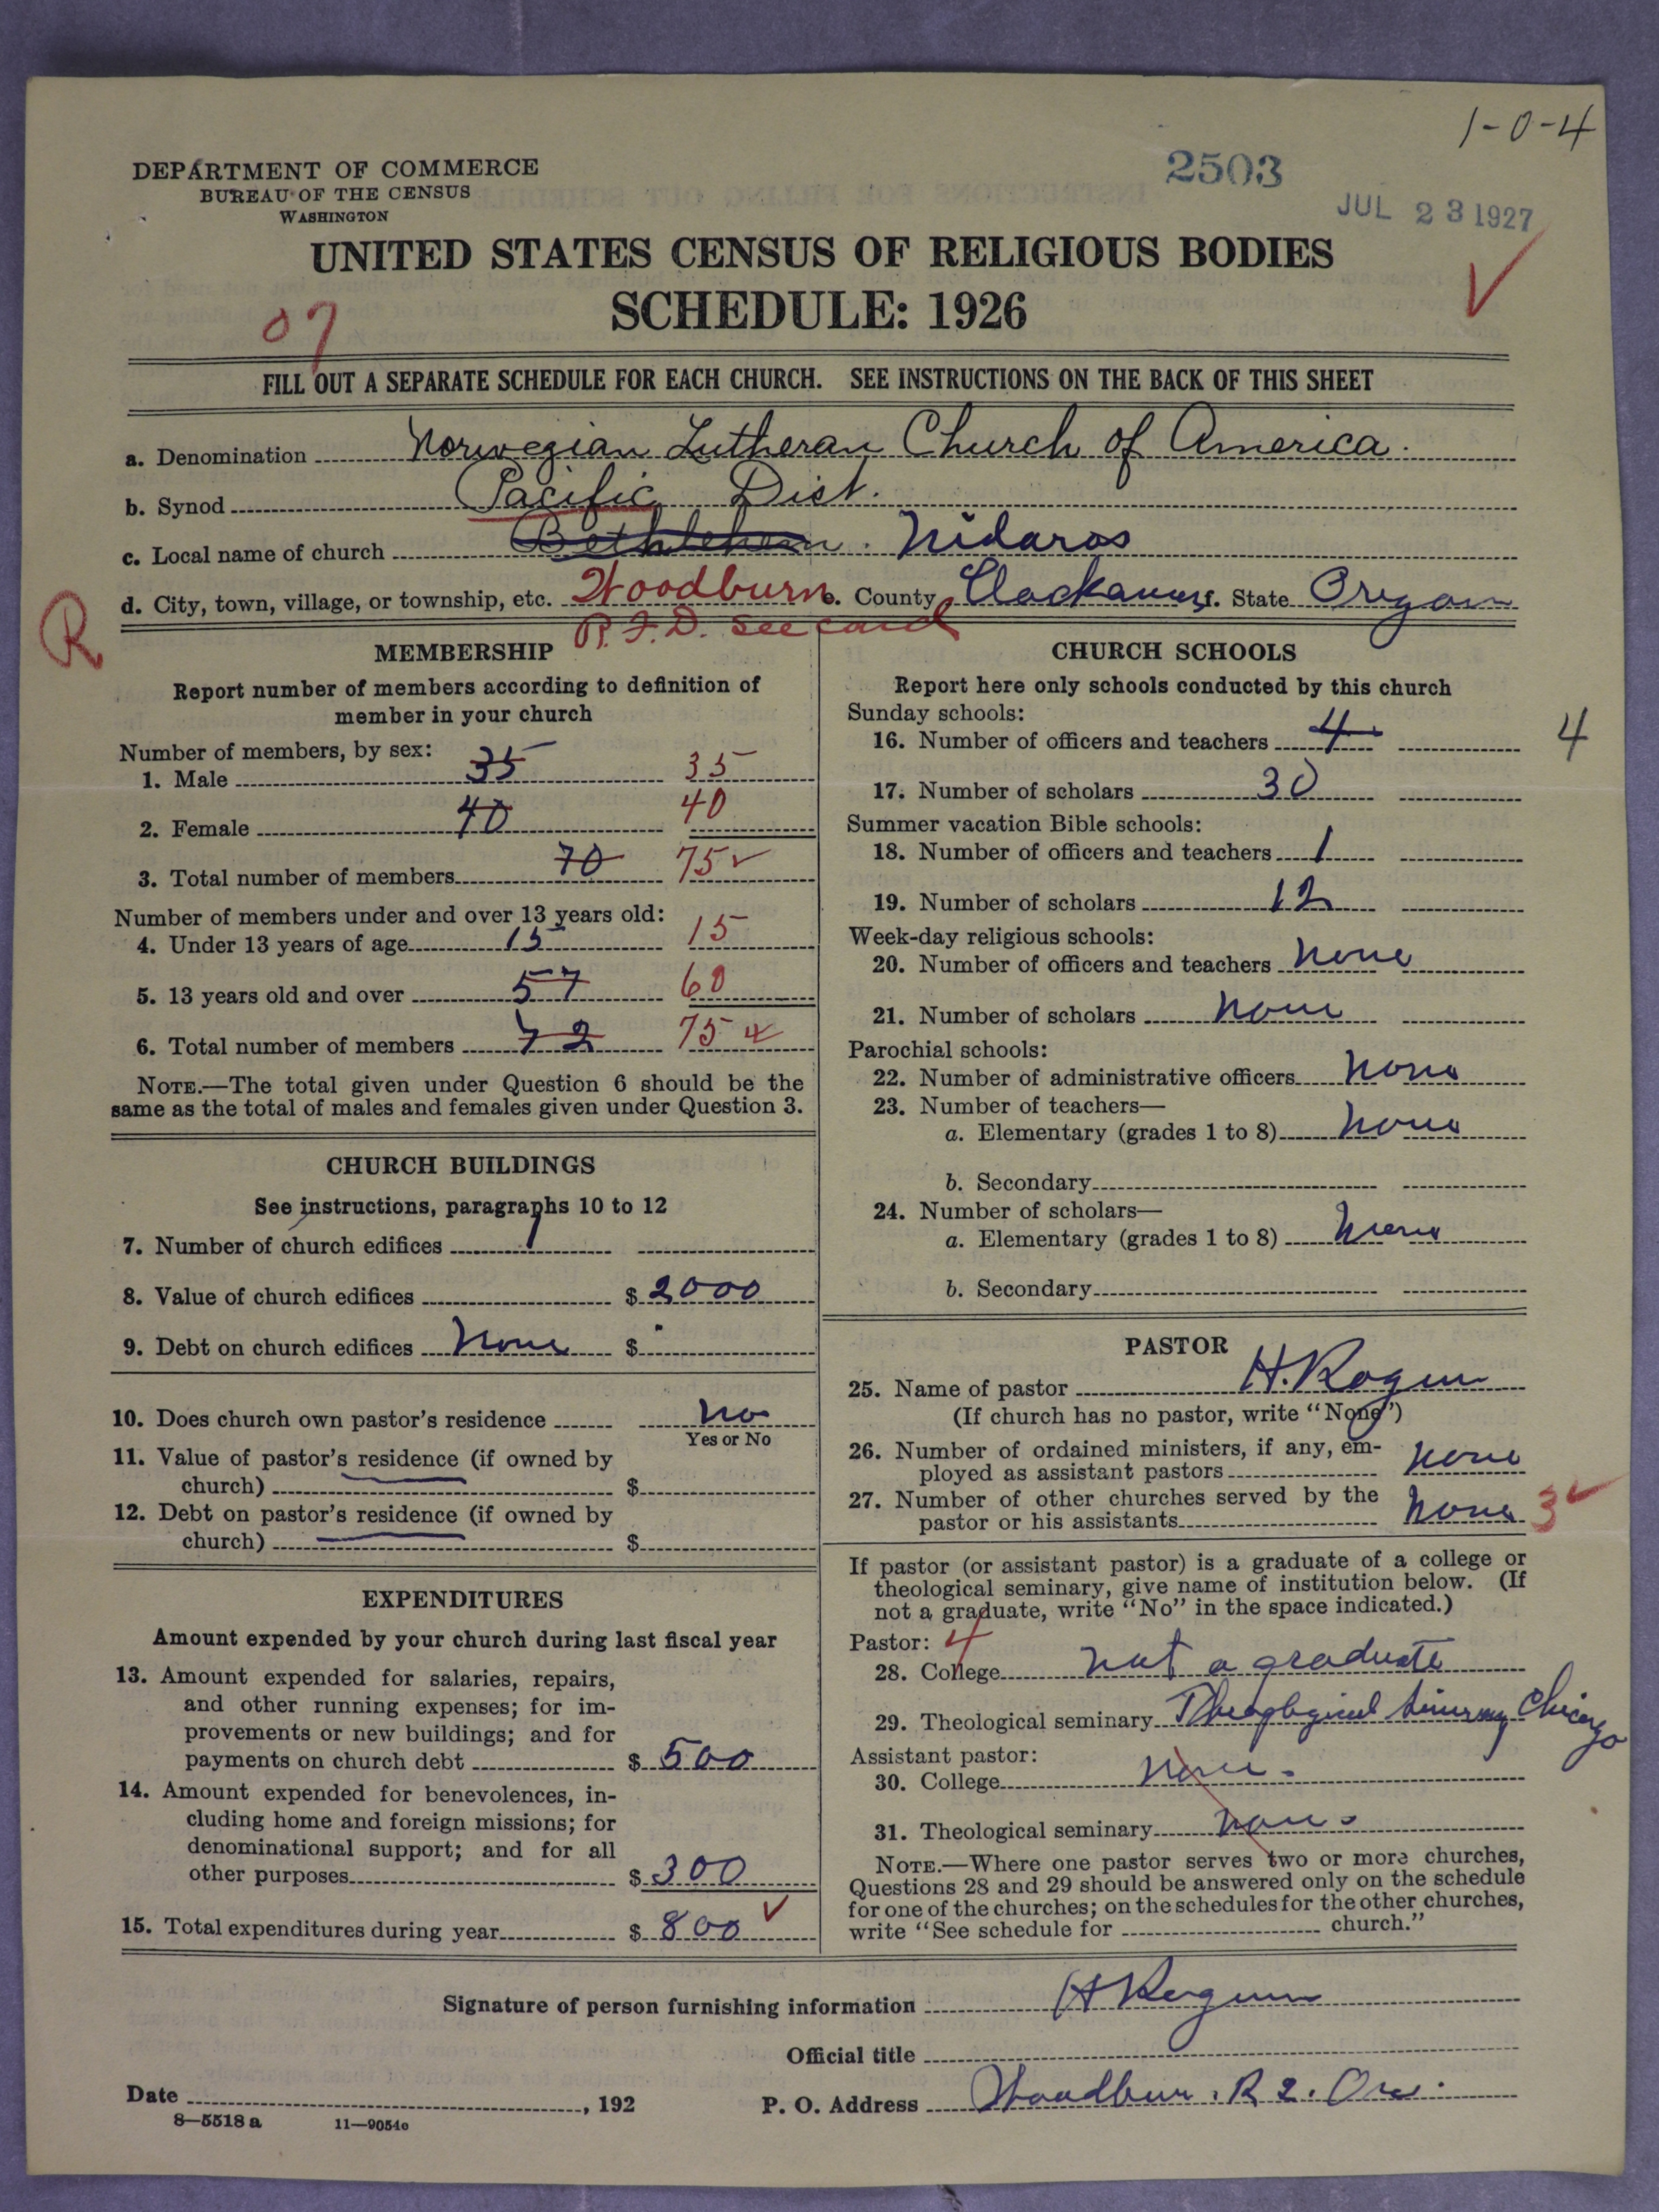 1-0-4
DEPARTMENT OF COMMERCE
BUREAU OF THE CENSUS
WASHINGTON
2503
JUL 23 1927
UNITED STATES CENSUS OF RELIGIOUS BODIES
SCHEDULE: 1926
07
FILL OUT A SEPARATE SCHEDULE FOR EACH CHURCH. SEE INSTRUCTIONS ON THE BACK OF THIS SHEET
a. Denomination Norwegian Lutheran Church of America.
b. Synod Pacific Dist.
c. Local name of church Bethlehem. Nidaros
d. City, town, village, or township, etc. Woodburn e. County Clackamas f. State Oregon
R
R.F.D. See card
MEMBERSHIP
Report number of members according to definition of
member in your church
Number of members, by sex:
1. Male 35 35
2. Female 40 40
3. Total number of members 70 75
Number of members under and over 13 years old:
4. Under 13 years of age 15 15
5. 13 years old and over 57 60
6. Total number of members 72 75
NOTE.—The total given under Question 6 should be the
same as the total of males and females given under Question 3.
CHURCH BUILDINGS
See instructions, paragraphs 10 to 12
7. Number of church edifices 1
8. Value of church edifices $ 2000
9. Debt on church edifices None $
10. Does church own pastor's residence No
Yes or No
11. Value of pastor's residence (if owned by
church) $
12. Debt on pastor's residence (if owned by
church) $
EXPENDITURES
Amount expended by your church during last fiscal year
13. Amount expended for salaries, repairs,
and other running expenses; for im-
provements or new buildings; and for
payments on church debt $ 500
14. Amount expended for benevolences, in-
cluding home and foreign missions; for
denominational support; and for all
other purposes $ 300
15. Total expenditures during year $ 800
CHURCH SCHOOLS
Report here only schools conducted by this church
Sunday schools:
16. Number of officers and teachers 4 4
17. Number of scholars 30
Summer vacation Bible schools:
18. Number of officers and teachers 1
19. Number of scholars 12
Week-day religious schools:
20. Number of officers and teachers None
21. Number of scholars None
Parochial schools:
22. Number of administrative officers None
23. Number of teachers—
a. Elementary (grades 1 to 8) None
b. Secondary
24. Number of scholars—
a. Elementary (grades 1 to 8) None
b. Secondary
PASTOR
25. Name of pastor H.
(If church has no pastor, write "None")
26. Number of ordained ministers, if any, em-
ployed as assistant pastors None
27. Number of other churches served by the
pastor or his assistants None 3
If pastor (or assistant pastor) is a graduate of a college or
theological seminary, give name of institution below. (If
not a graduate, write "No" in the space indicated.)
Pastor: 4
28. College not a graduate
29. Theological seminary Theological Seminary Chicago
Assistant pastor:
30. College None.
31. Theological seminary None
NOTE.—Where one pastor serves two or more churches,
Questions 28 and 29 should be answered only on the schedule
for one of the churches; on the schedules for the other churches,
write "See schedule for church."
Signature of person furnishing information H
Official title
Date , 192
P. O. Address Woodburn. R 2. Ore.
8—5518 a 11—9054c